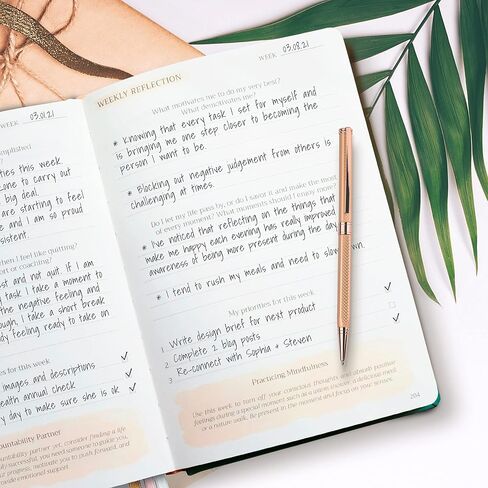 WEEK 03.01.21
mplished
ties this week
one to carry out
big deal.
are starting to feel
e and I am so proud
sistent.
hen I feel like quitting?
ort or coaching?
st and not quit. If I am
task I take a moment to
the negative feeling and
ough, I take a short break
dy feeling ready to take on
es for this week
images and descriptions
ealth annual check
y day to make sure she is ok
ountability Partner
WEEK 03.08.21
WEEKLY REFLECTION
What motivates me to do my very best?
What demotivates me?
* Knowing that every task I set for myself and
is bringing me one step closer to becoming the
person I want to be.
* Blocking out negative judgement from others is
challenging at times.
Do I let my life pass by, or do I savor it and make the most
of every moment? What moments should I enjoy more?
* I've noticed that reflecting on the things that
make me happy each evening has really improved
awareness of being more present during the day.
* I tend to rush my meals and need to slow down.
My priorities for this week
1 Write design brief for next product
2 Complete 2 blog posts
3 Re-connect with Sophia + Steven
Practicing Mindfulness
Use this week to turn off your conscious thoughts and absorb positive
feelings during a special moment such as a sunset, incense, a delicious meal
or a nature walk. Be present in the moment and focus on your senses.
204